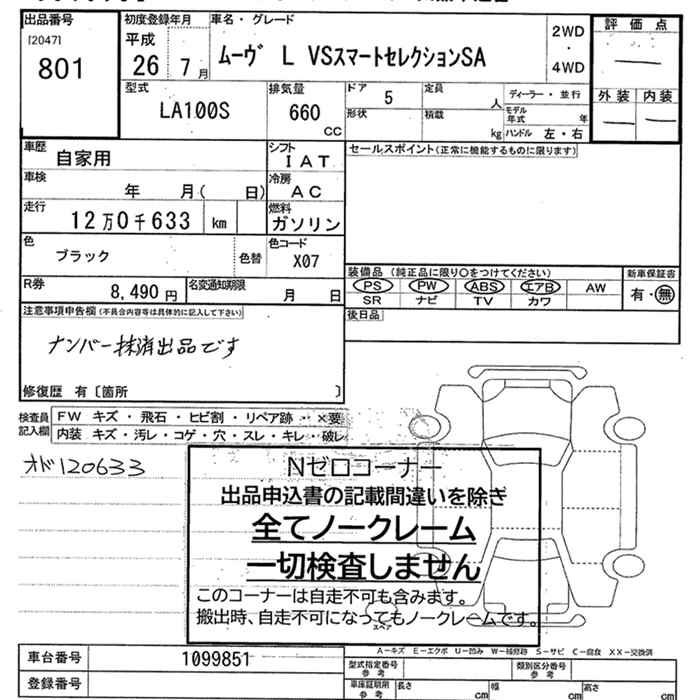 出品番号
[2047]
801
初度登録年月
平成
26年7月
車名・グレード
ムーヴ L VSスマートセレクションSA
2WD
・
4WD
評価点
外装 内装
型式
LA100S
排気量
660
CC
ドア 5
形状
定員 人
積載 kg
ディーラー・並行
モデル年式 年
ハンドル 左・右
車歴
自家用
シフト
IAT
車検
年 月( 日)
冷房
AC
走行
12万0千633 km
燃料
ガソリン
色
ブラック
色替
色コード
X07
R券
8,490円
名変通知期限
月 日
セールスポイント(正常に機能するものに限ります)
装備品 (純正品に限り○をつけてください)
新車保証書
PS PW ABS エアB AW
SR ナビ TV カワ
有・無
後日品
注意事項申告欄(不具合内容等は具体的に記入して下さい)
ナンバー抹消出品です
修復歴 有〔箇所 〕
検査員
記入欄
FW キズ・飛石・ヒビ割・リペア跡・×要
内装 キズ・汚レ・コゲ・穴・スレ・キレ・破レ
オド120633
Nゼロコーナー
出品申込書の記載間違いを除き
全てノークレーム
一切検査しません
このコーナーは自走不可も含みます。
搬出時、自走不可になってもノークレームです。
スペア
A−キズ E−エクボ U−凹み W−補修跡 S−サビ C−腐食 XX−交換済
車台番号
1099851
登録番号
型式指定番号
参考
類別区分番号
参考
車庫証明用
参考
長さ cm
幅 cm
高さ cm